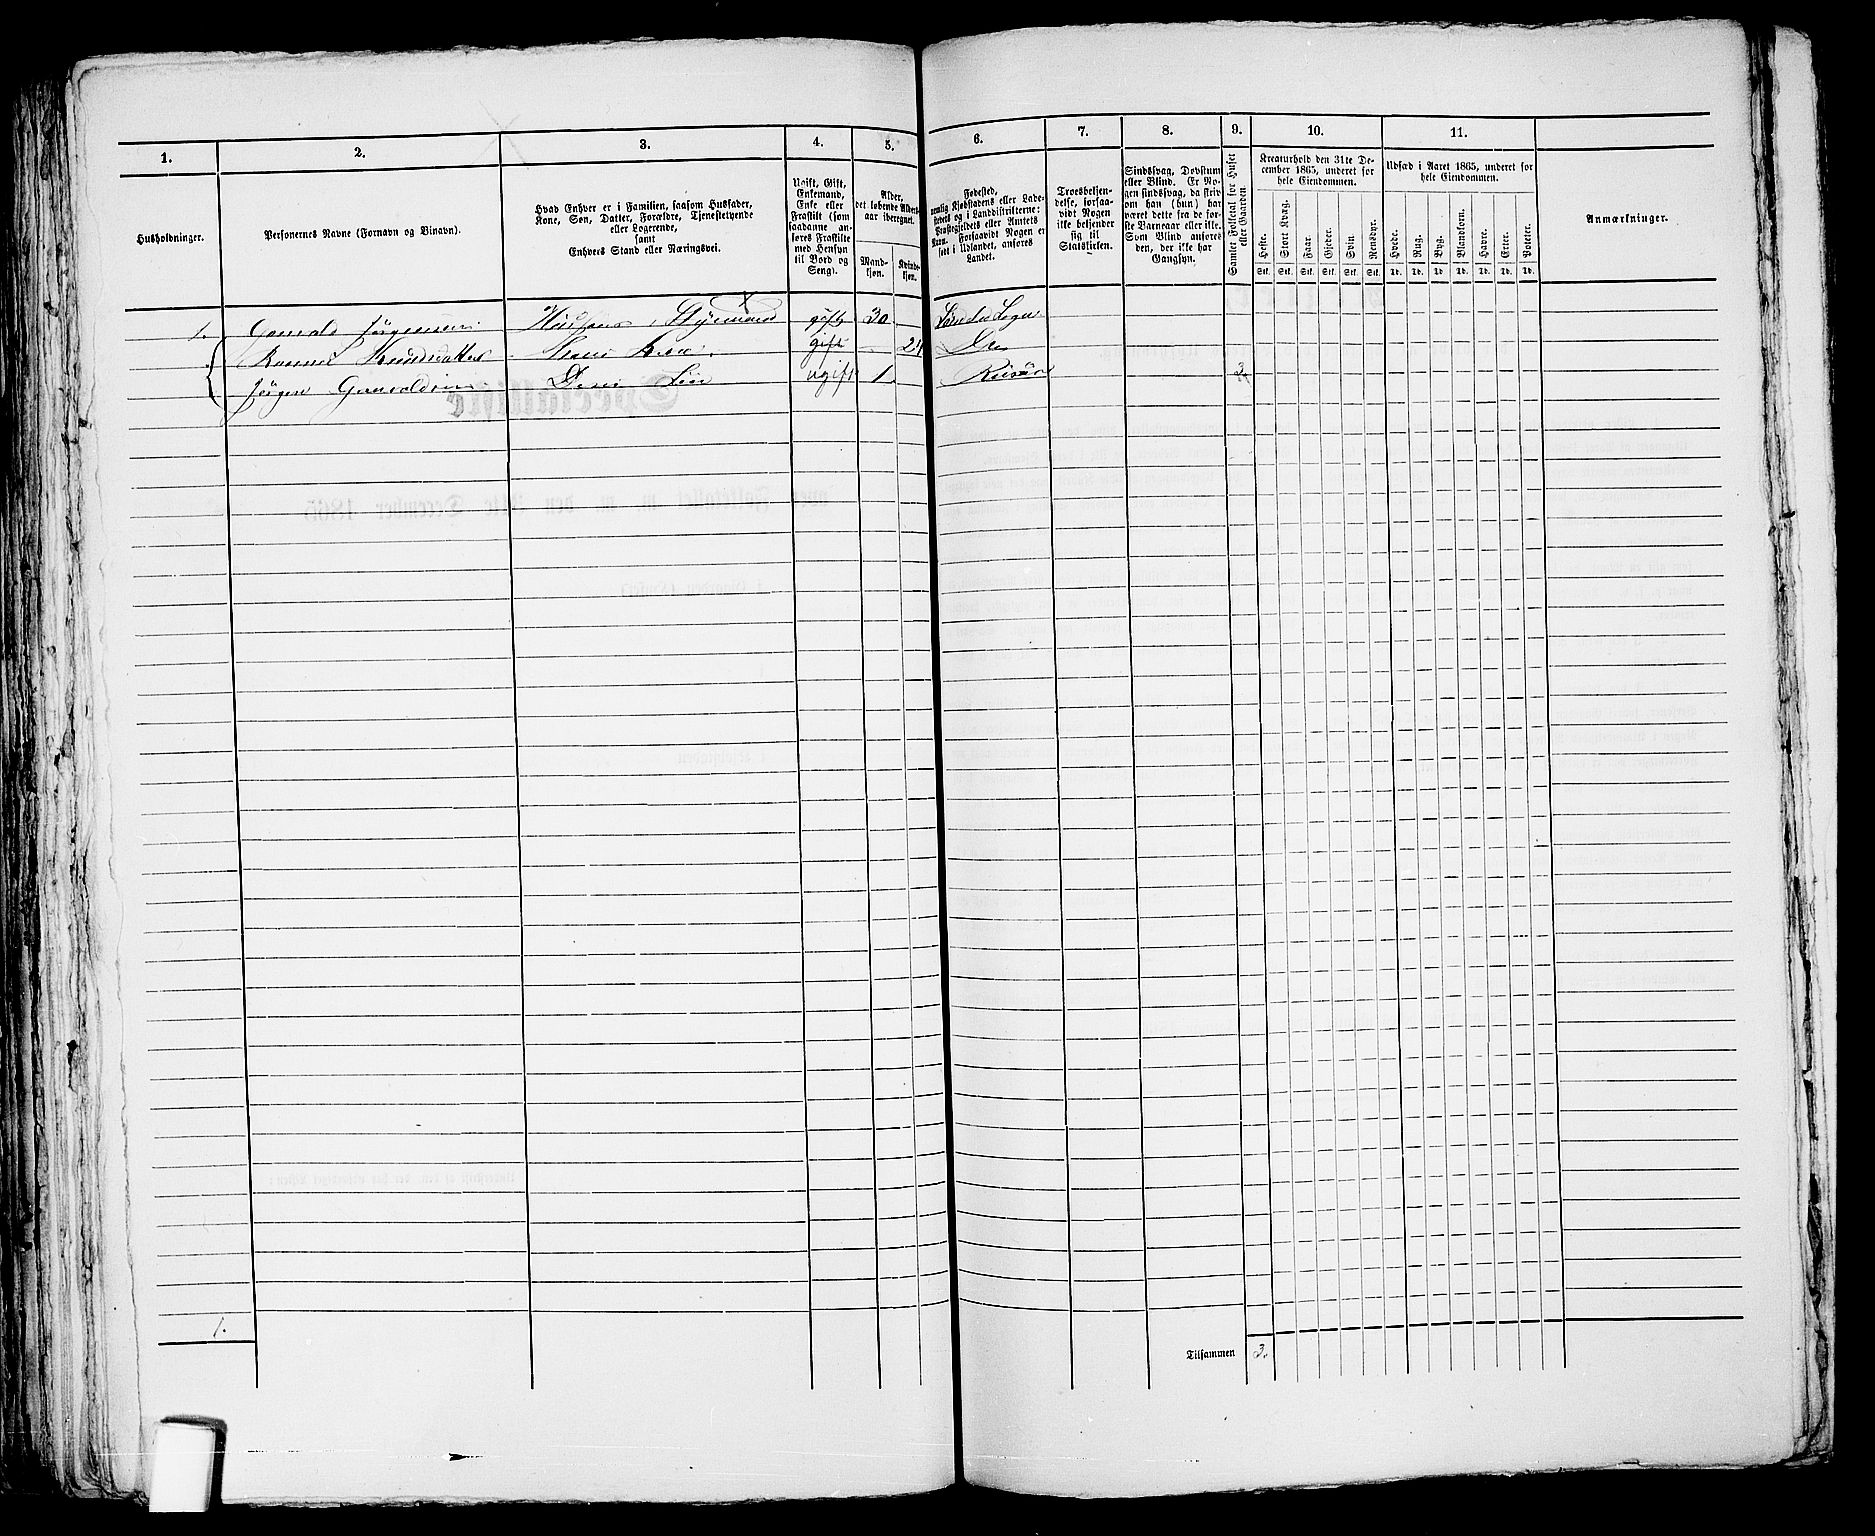 1. 2. 3. 4. 5. 6. 7. 8. 9. 10. 11.
Husholdninger.
Personernes Navne (Fornavn og Binavn).
Hvad Enhver er i Familien, saasom Husfader,
Kone, Søn, Datter, Forældre, Tjenestetyende
eller Logerende,
samt
Enhvers Stand eller Næringsvei.
Ugift, Gift,
Enkemand,
Enke eller
Fraskilt (som
saadanne an-
føres Fraskilte
med Hensyn
til Bord og
Seng).
Alder,
det løbende Alders-
aar iberegnet.
Mand-
kjøn.
Kvinde-
kjøn.
Fødested,
nemlig Kjøbstadens eller Lade-
stedets og i Landdistrikterne:
Præstegjeldets eller Amtets
Navn. Forsaavidt Nogen er
født i Udlandet, anføres
Landet.
Troesbekjen-
delse, forsaa-
vidt Nogen
ikke bekjender
sig til
Statskirken.
Sindssvag, Døvstum
eller Blind. Er No-
gen sindssvag, da skriv-
es om han (hun) har
været dette fra de før-
ste Barneaar eller ikke.
Som Blind anføres
den, der ikke har
Gangsyn.
Samlet Folketal for Huset
eller Gaarden.
Kreaturhold den 31te De-
cember 1865, underet for
hele Eiendommen.
Heste. Stort Kvæg. Faar. Gjeder. Svin. Rensdyr.
Stk. Stk. Stk. Stk. Stk. Stk.
Udsæd i Aaret 1865, underet for
hele Eiendommen.
Hvede. Rug. Byg. Blandkorn. Havre. Erter. Poteter.
Td. Td. Td. Td. Td. Td. Td.
Anmærkninger.
1. Jørgensen Styrmand gift 30
Knudsdatter gift
Jørgen ugift 1 Risør
1.
Tilsammen 3.